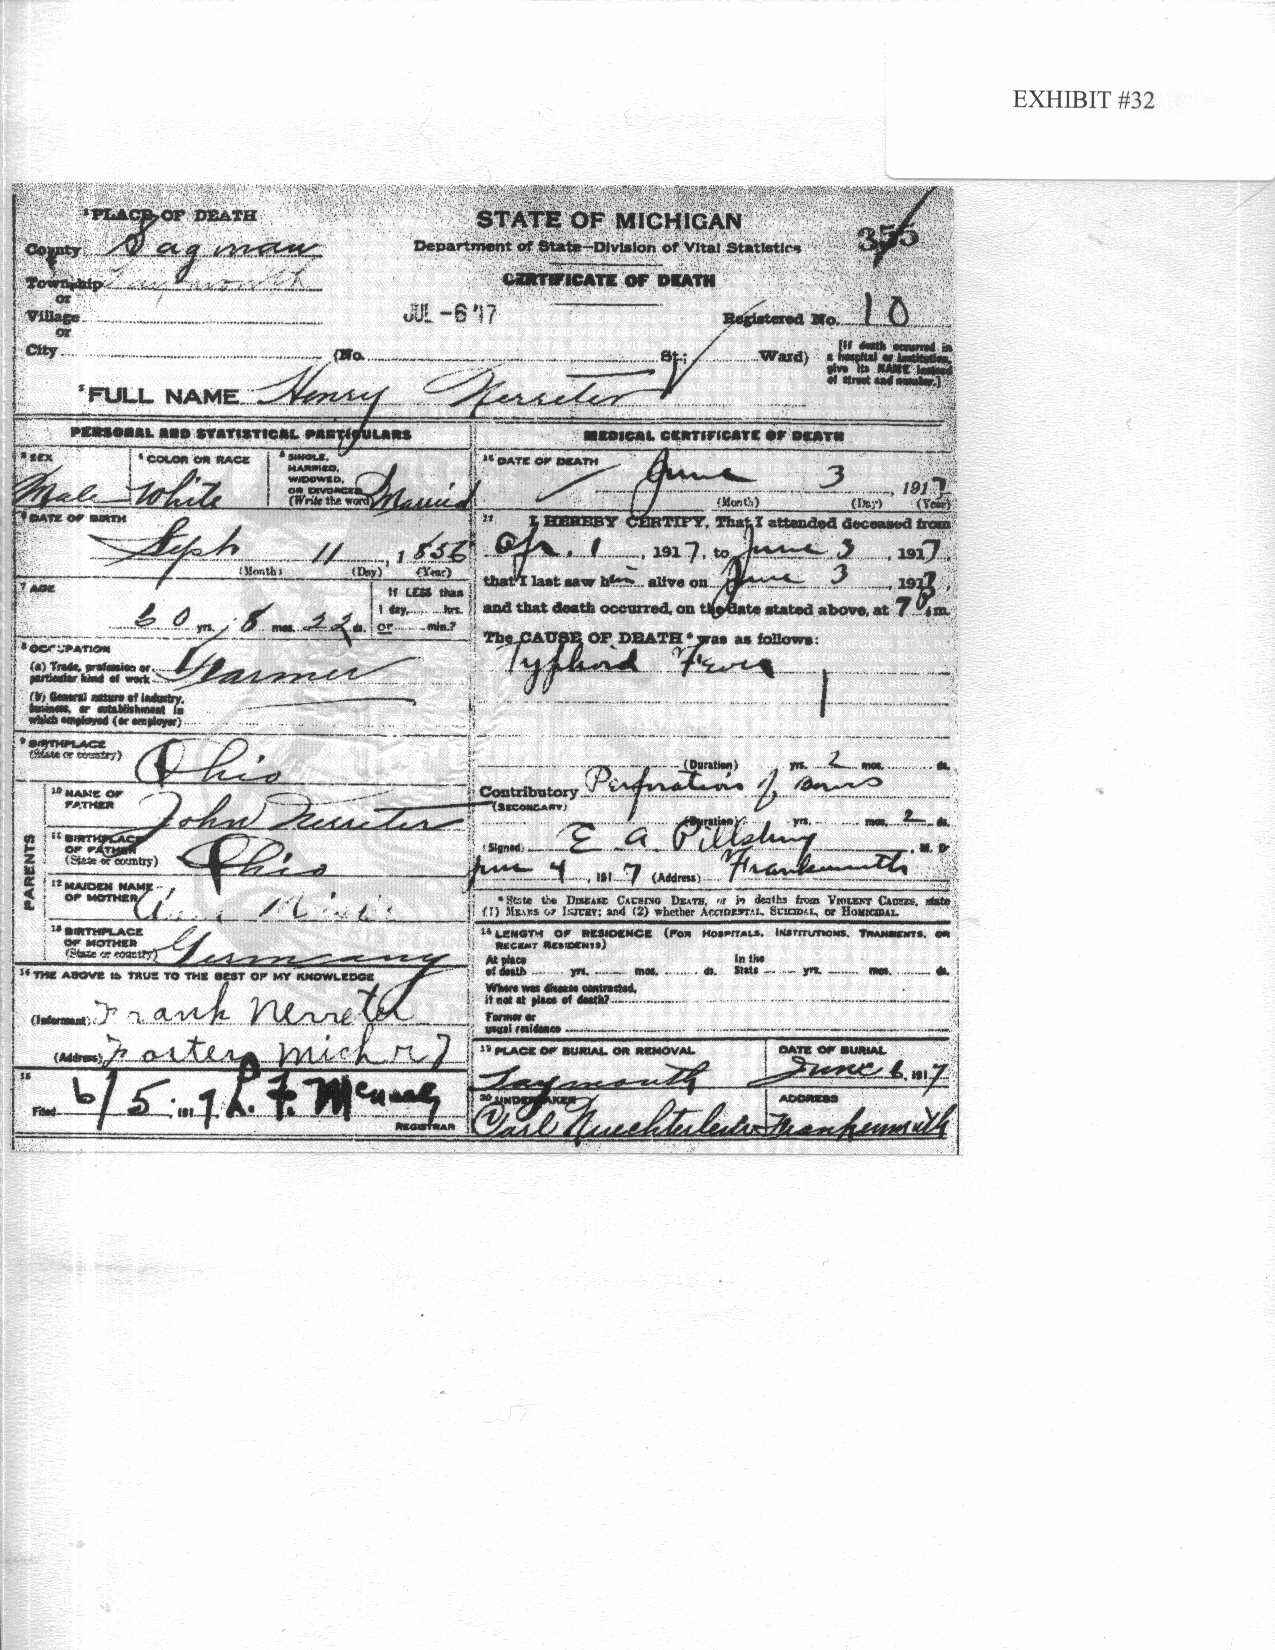 EXHIBIT #32
¹PLACE OF DEATH
County Saginaw
Township Taymouth
or
Village
or
City (No. St.; Ward)
STATE OF MICHIGAN
Department of State—Division of Vital Statistics
CERTIFICATE OF DEATH
355
JUL -6 '17
Registered No. 10
[If death occurred in
a hospital or institution,
give its NAME instead
of street and number.]
²FULL NAME Henry Nerreter
PERSONAL AND STATISTICAL PARTICULARS
³ SEX Male
⁴ COLOR OR RACE White
⁵ SINGLE,
MARRIED,
WIDOWED,
OR DIVORCED
(Write the word) Married
⁶ DATE OF BIRTH
Seph 11, 1856
(Month) (Day) (Year)
⁷ AGE
60 yrs. 8 mos. 22 ds.
If LESS than
1 day, hrs.
or min.?
⁸ OCCUPATION
(a) Trade, profession or
particular kind of work Farmer
(b) General nature of industry,
business, or establishment in
which employed (or employer)
⁹ BIRTHPLACE
(State or country) Ohio
PARENTS
¹⁰ NAME OF
FATHER John Nerreter
¹¹ BIRTHPLACE
OF FATHER
(State or country) Ohio
¹² MAIDEN NAME
OF MOTHER
¹³ BIRTHPLACE
OF MOTHER
(State or country) Germany
¹⁴ THE ABOVE IS TRUE TO THE BEST OF MY KNOWLEDGE
(Informant) Frank Nerreter
(Address) Foster Mich R 7
¹⁵
Filed 6/5, 1917
REGISTRAR
MEDICAL CERTIFICATE OF DEATH
¹⁶ DATE OF DEATH
June 3, 1917
(Month) (Day) (Year)
¹⁷ I HEREBY CERTIFY, That I attended deceased from
Apr. 1, 1917, to June 3, 1917,
that I last saw him alive on June 3, 1917,
and that death occurred, on the date stated above, at 7 P m.
The CAUSE OF DEATH* was as follows:
Typhoid Fever
1
(Duration) yrs. 2 mos. ds.
Contributory Perforation of Bowels
(SECONDARY)
(Duration) yrs. mos. 2 ds.
(Signed) E A Pillsbury, M. D.
June 4, 1917 (Address) Frankenmuth
*State the DISEASE CAUSING DEATH, or in deaths from VIOLENT CAUSES, state
(1) MEANS OF INJURY; and (2) whether ACCIDENTAL, SUICIDAL, or HOMICIDAL
¹⁸ LENGTH OF RESIDENCE (FOR HOSPITALS, INSTITUTIONS, TRANSIENTS, OR
RECENT RESIDENTS)
At place In the
of death yrs. mos. ds. State yrs. mos. ds.
Where was disease contracted,
if not at place of death?
Former or
usual residence
¹⁹ PLACE OF BURIAL OR REMOVAL
Taymouth
DATE OF BURIAL
June 6, 1917
²⁰ UNDERTAKER
Carl Nuechterlein
ADDRESS
Frankenmuth